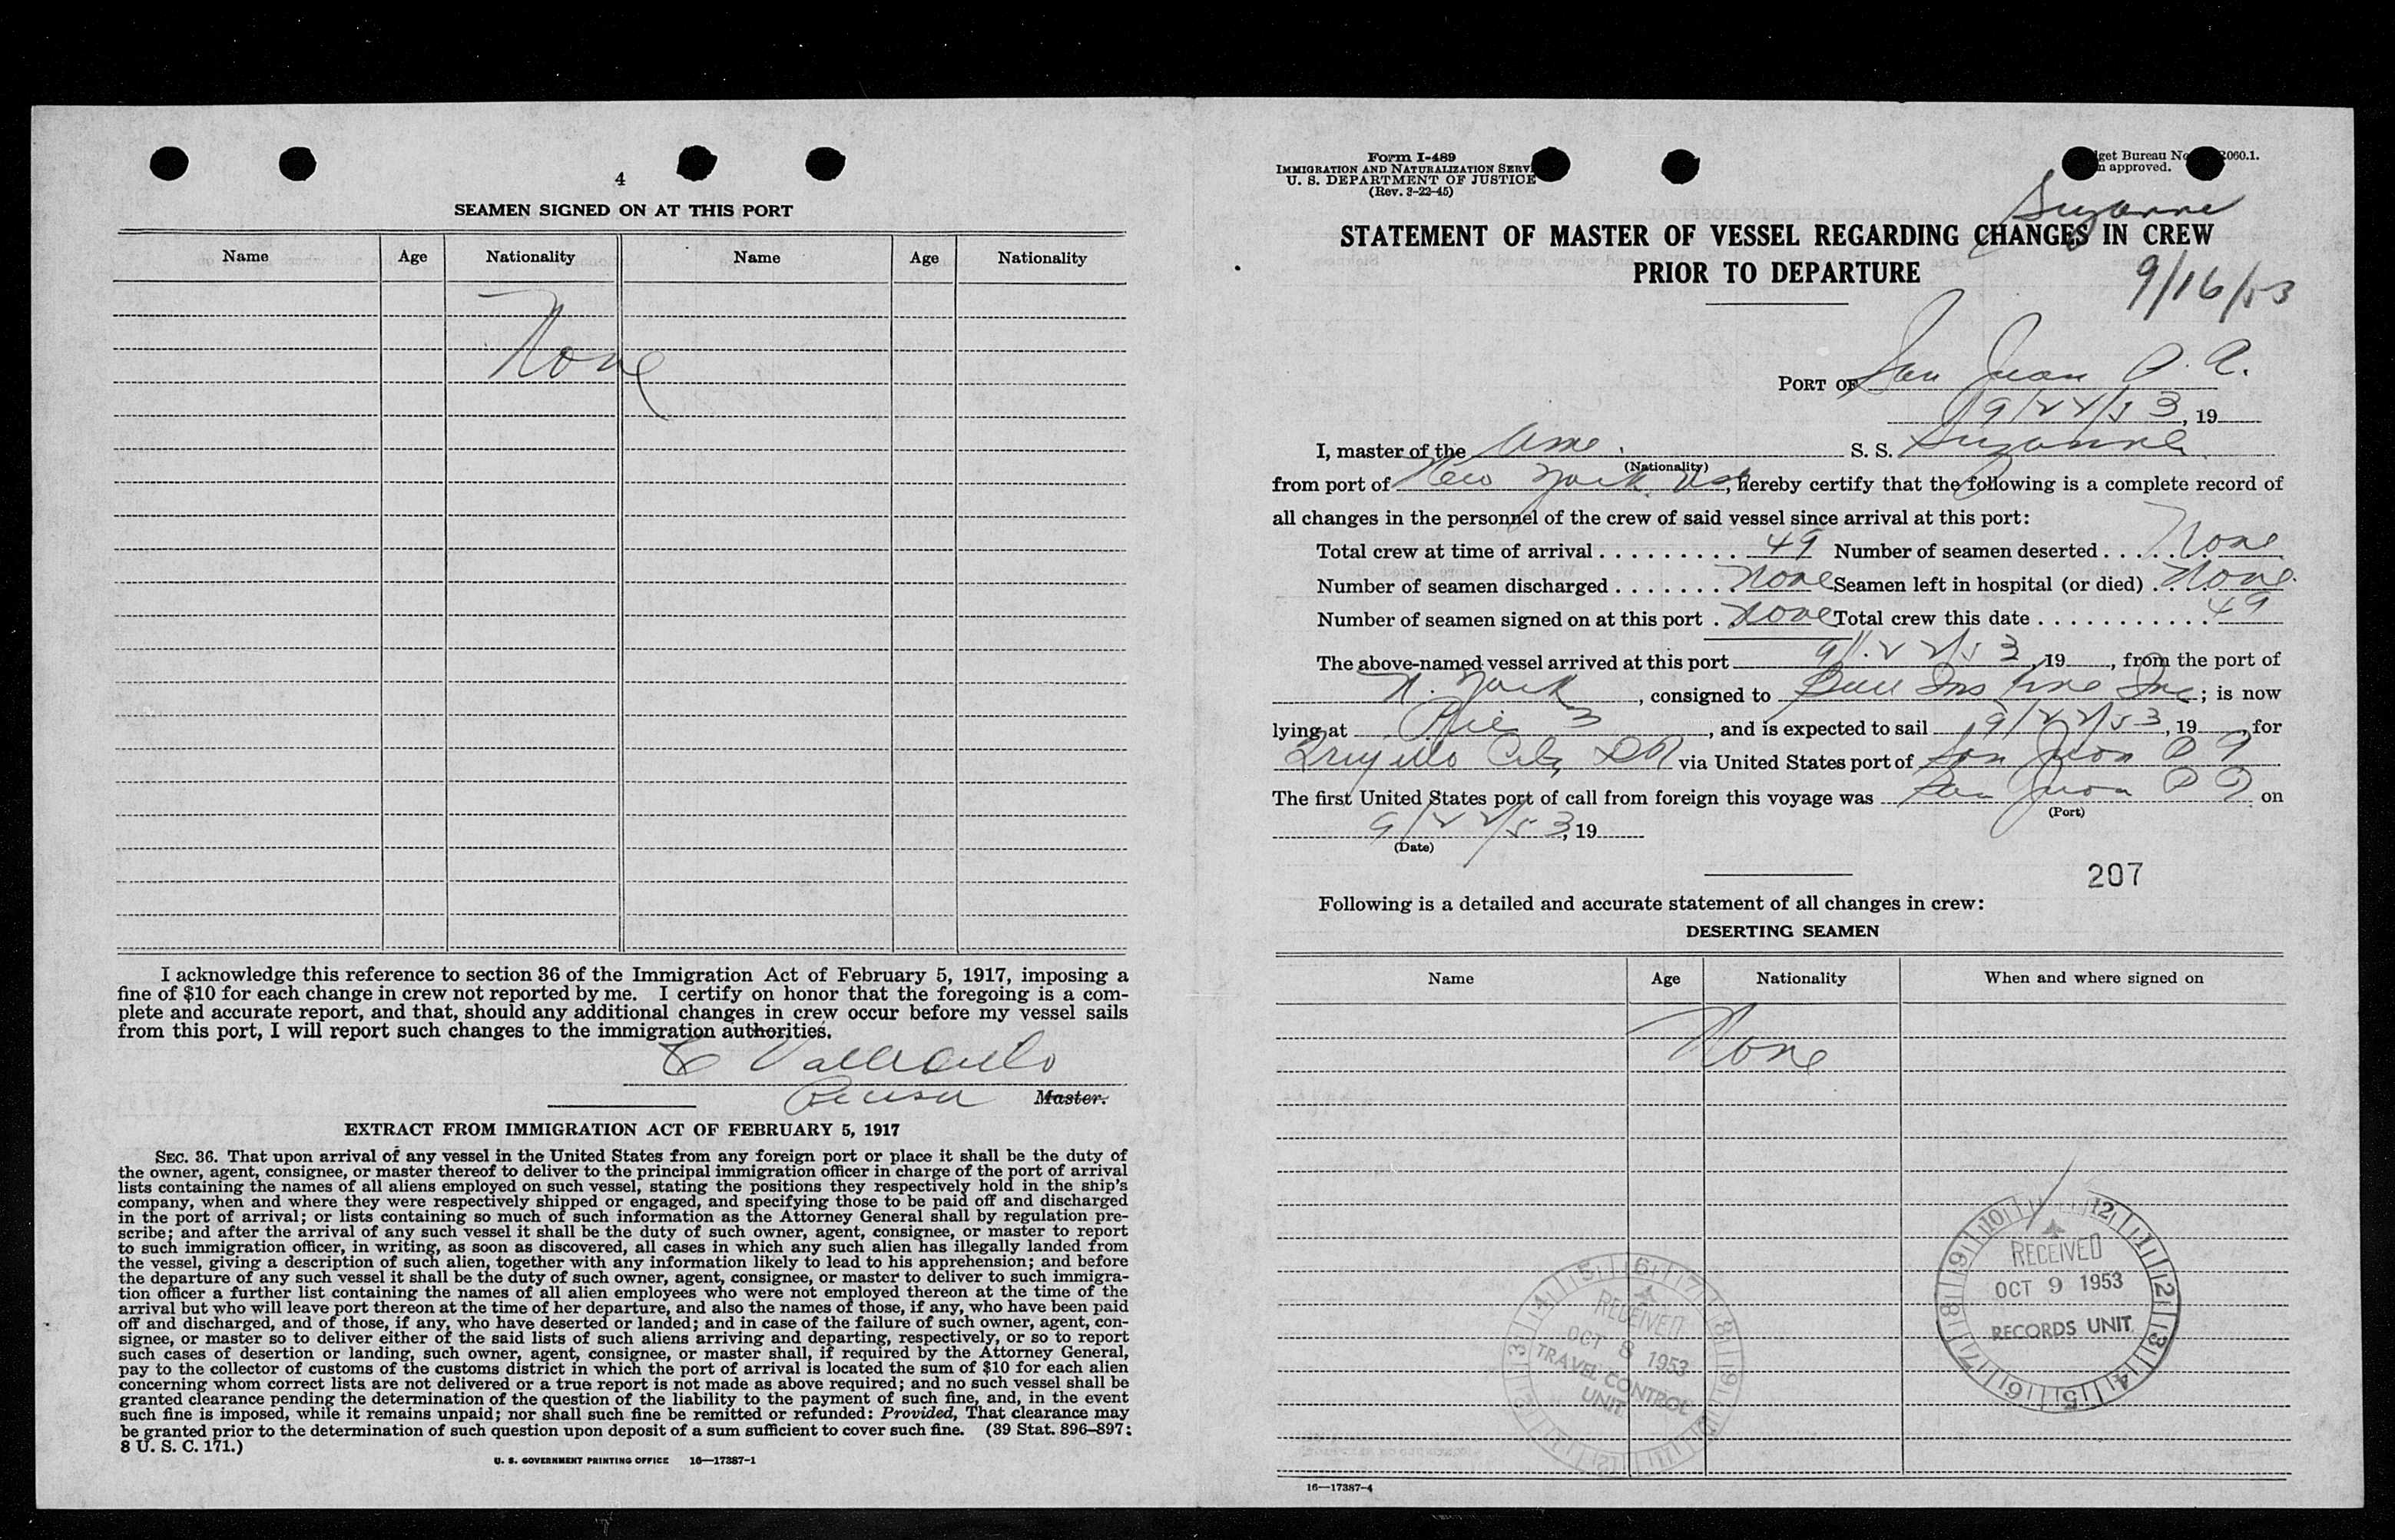 4
SEAMEN SIGNED ON AT THIS PORT
Name Age Nationality Name Age Nationality
None
I acknowledge this reference to section 36 of the Immigration Act of February 5, 1917, imposing a
fine of $10 for each change in crew not reported by me. I certify on honor that the foregoing is a com-
plete and accurate report, and that, should any additional changes in crew occur before my vessel sails
from this port, I will report such changes to the immigration authorities.
Purser Master.
EXTRACT FROM IMMIGRATION ACT OF FEBRUARY 5, 1917
SEC. 36. That upon arrival of any vessel in the United States from any foreign port or place it shall be the duty of
the owner, agent, consignee, or master thereof to deliver to the principal immigration officer in charge of the port of arrival
lists containing the names of all aliens employed on such vessel, stating the positions they respectively hold in the ship's
company, when and where they were respectively shipped or engaged, and specifying those to be paid off and discharged
in the port of arrival; or lists containing so much of such information as the Attorney General shall by regulation pre-
scribe; and after the arrival of any such vessel it shall be the duty of such owner, agent, consignee, or master to report
to such immigration officer, in writing, as soon as discovered, all cases in which any such alien has illegally landed from
the vessel, giving a description of such alien, together with any information likely to lead to his apprehension; and before
the departure of any such vessel it shall be the duty of such owner, agent, consignee, or master to deliver to such immigra-
tion officer a further list containing the names of all alien employees who were not employed thereon at the time of the
arrival but who will leave port thereon at the time of her departure, and also the names of those, if any, who have been paid
off and discharged, and of those, if any, who have deserted or landed; and in case of the failure of such owner, agent, con-
signee, or master so to deliver either of the said lists of such aliens arriving and departing, respectively, or so to report
such cases of desertion or landing, such owner, agent, consignee, or master shall, if required by the Attorney General,
pay to the collector of customs of the customs district in which the port of arrival is located the sum of $10 for each alien
concerning whom correct lists are not delivered or a true report is not made as above required; and no such vessel shall be
granted clearance pending the determination of the question of the liability to the payment of such fine, and, in the event
such fine is imposed, while it remains unpaid; nor shall such fine be remitted or refunded: Provided, That clearance may
be granted prior to the determination of such question upon deposit of a sum sufficient to cover such fine. (39 Stat. 896-897;
8 U. S. C. 171.)
U. S. GOVERNMENT PRINTING OFFICE 16—17387-1
Form I-489
IMMIGRATION AND NATURALIZATION SERV
U. S. DEPARTMENT OF JUSTICE
(Rev. 3-22-45)
get Bureau No 2060.1.
n approved.
Suzanne
STATEMENT OF MASTER OF VESSEL REGARDING CHANGES IN CREW
PRIOR TO DEPARTURE
9/16/53
PORT OF San Juan P.R.
9/22/53, 19
I, master of the Ame. S. S. Suzanne
(Nationality)
from port of New York, hereby certify that the following is a complete record of
all changes in the personnel of the crew of said vessel since arrival at this port:
Total crew at time of arrival 49 Number of seamen deserted None
Number of seamen discharged None Seamen left in hospital (or died) None
Number of seamen signed on at this port None Total crew this date 49
The above-named vessel arrived at this port 9/22/53, 19, from the port of
N. York, consigned to Bull Ins Line Inc; is now
lying at Pier 3, and is expected to sail 9/22/53, 19, for
Trujillo City DR via United States port of San Juan P R
The first United States port of call from foreign this voyage was San Juan P R on
(Port)
9/22/53, 19
(Date)
207
Following is a detailed and accurate statement of all changes in crew:
DESERTING SEAMEN
Name Age Nationality When and where signed on
None
RECEIVED
OCT 8 1953
TRAVEL CONTROL
UNIT
RECEIVED
OCT 9 1953
RECORDS UNIT
16—17387-4